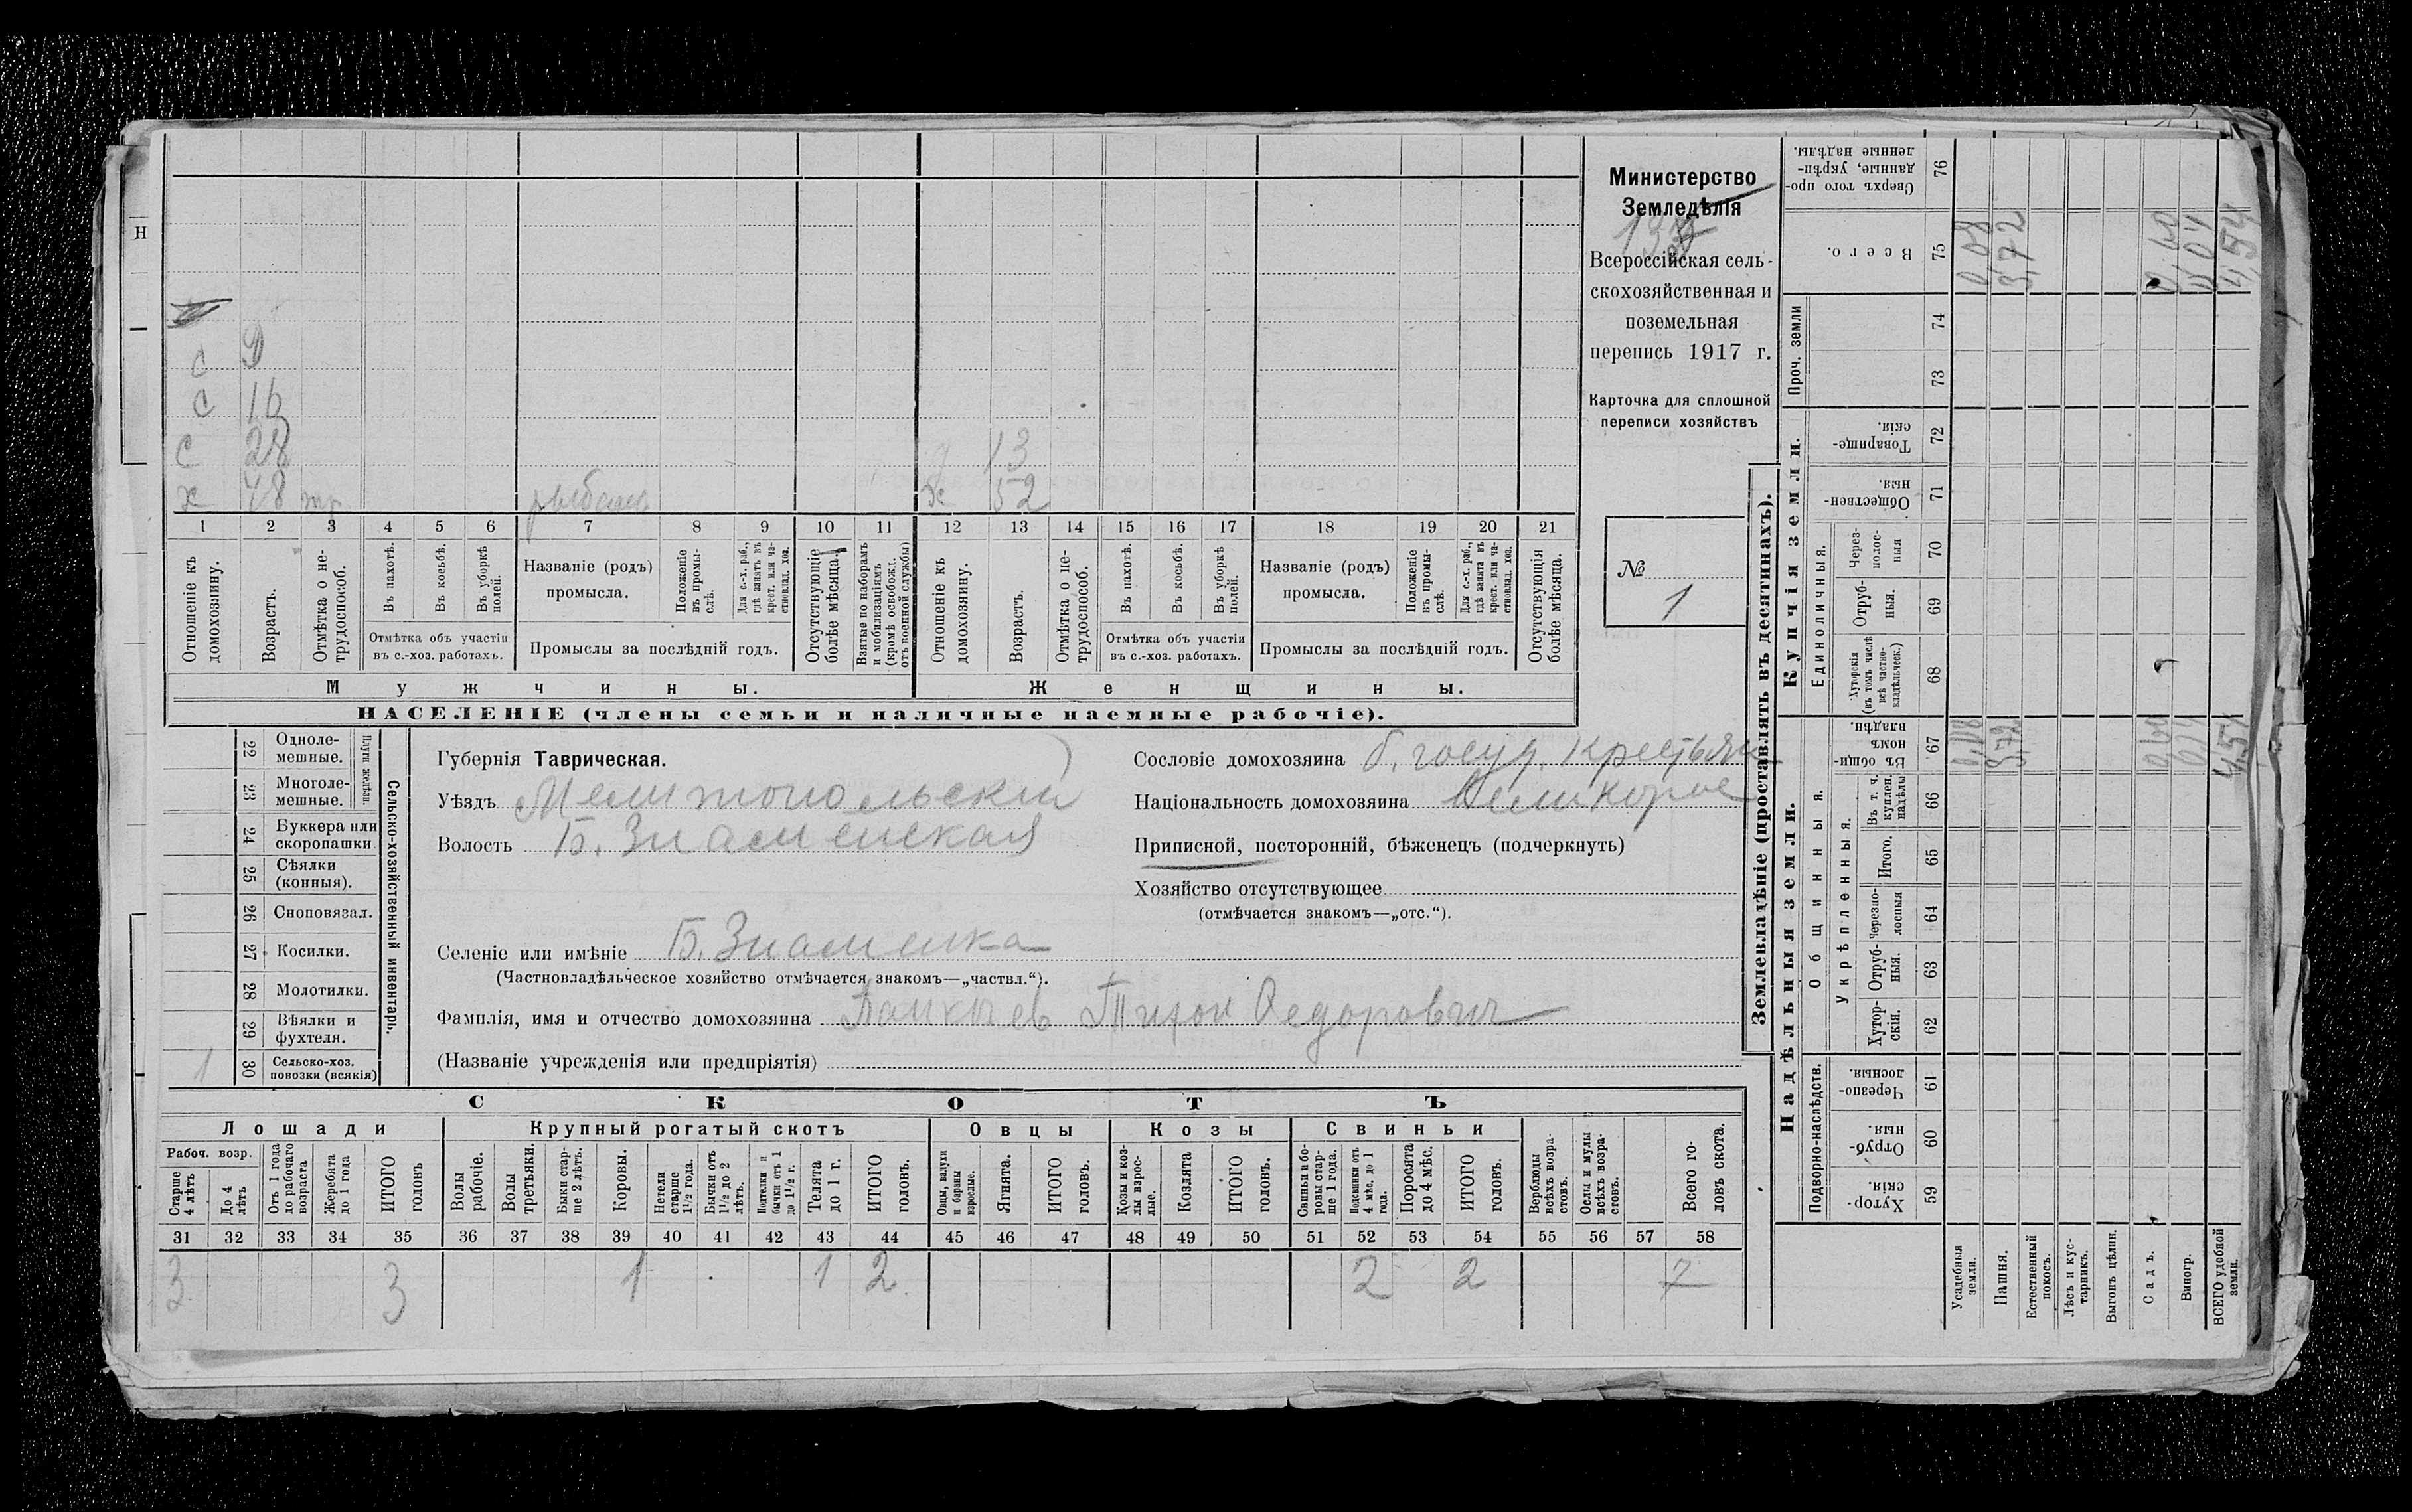 Н
Министерство
Земледѣлія
13
Всероссійская сель-
скохозяйственная и
поземельная
перепись 1917 г.
Карточка для сплошной
переписи хозяйствъ
№
1
С
С 16
С 28
х 48
13
х 52
1 2 3 4 5 6 7 8 9 10 11 12 13 14 15 16 17 18 19 20 21
Отношеніе къ домохозяину.
Возрастъ.
Отмѣтка о не-трудоспособ.
Въ пахотѣ.
Въ косьбѣ.
Въ уборкѣ полей.
Отмѣтка объ участіи въ с.-хоз. работахъ.
Названіе (родъ) промысла.
Положеніе въ промы-слѣ.
Для с.-х. раб., гдѣ занятъ въ крест. или ча-стновлад. хоз.
Промыслы за послѣдній годъ.
Отсутствующіе болѣе мѣсяца.
Взятые по наборамъ и мобилизаціямъ (кромѣ освобожд. отъ военной службы)
Отношеніе къ домохозяину.
Возрастъ.
Отмѣтка о не-трудоспособ.
Въ пахотѣ.
Въ косьбѣ.
Въ уборкѣ полей.
Отмѣтка объ участіи въ с.-хоз. работахъ.
Названіе (родъ) промысла.
Положеніе въ промы-слѣ.
Для с.-х. раб., гдѣ занята въ крест. или ча-стновлад. хоз.
Промыслы за послѣдній годъ.
Отсутствующія болѣе мѣсяца.
Мужчины.
Женщины.
НАСЕЛЕНІЕ (члены семьи и наличные наемные рабочіе).
22 Одноле-мешные.
23 Многоле-мешные.
Плуги желѣзн.
24 Буккера или скоропашки
25 Сѣялки (конныя).
26 Сноповязал.
27 Косилки.
28 Молотилки.
29 Вѣялки и фухтеля.
1 30 Сельско-хоз. повозки (всякія)
Сельско-хозяйственный инвентарь.
Губернія Таврическая.
Уѣздъ Мелитопольскій
Волость Б. Знаменская
Сословіе домохозяина б. госуд. крестьян
Національность домохозяина
Приписной, посторонній, бѣженецъ (подчеркнуть)
Хозяйство отсутствующее
(отмѣчается знакомъ—„отс.“).
Селеніе или имѣніе Б. Знаменка
(Частновладѣльческое хозяйство отмѣчается знакомъ—„частвл.“).
Фамилія, имя и отчество домохозяина Тихон Федорович
(Названіе учрежденія или предпріятія)
СКОТЪ
Лошади
Крупный рогатый скотъ
Овцы
Козы
Свиньи
Рабоч. возр.
Старше 4 лѣтъ
До 4 лѣтъ
Отъ 1 года до рабочаго возраста
Жеребята до 1 года
ИТОГО головъ
Волы рабочіе.
Волы третьяки.
Быки стар-ше 2 лѣтъ.
Коровы.
Нетели старше 1½ года.
Бычки отъ 1½ до 2 лѣтъ.
Подтелки и бычки отъ 1 до 1½ г.
Телята до 1 г.
ИТОГО головъ.
Овцы, валухи и бараны взрослые.
Ягнята.
ИТОГО головъ.
Козы и коз-лы взрос-лые.
Козлята
ИТОГО головъ.
Свиньи и бо-ровы стар-ше 1 года.
Подсвинки отъ 4 мѣс. до 1 года.
Поросята до 4 мѣс.
ИТОГО головъ.
Верблюды всѣхъ возра-стовъ.
Ослы и мулы всѣхъ возра-стовъ.
Всего го-ловъ скота.
31 32 33 34 35 36 37 38 39 40 41 42 43 44 45 46 47 48 49 50 51 52 53 54 55 56 57 58
3 3 1 1 2 2 2 7
Землевладѣніе (проставлять въ десятинахъ).
Купчія земли.
Надѣльныя земли.
Сверхъ того про-данные, укрѣп-ленные надѣлы. 76
Всего. 75
0,08
3,72
4,54
Проч. земли
74
73
Товарище-скія. 72
Обществен-ныя. 71
Единоличныя.
Через-полос-ныя 70
Отруб-ныя. 69
Хуторскія (въ томъ числѣ всѣ частно-владѣльческ.) 68
Общинныя.
Въ общи-номъ владѣн. 67
3,72
Укрѣпленныя.
Въ т. ч. куплен. надѣлы 66
Итого. 65
Черезпо-лосныя 64
Отруб-ныя. 63
Хутор-скія. 62
Подворно-наслѣдств.
Черезпо-лосныя. 61
Отруб-ныя. 60
Хутор-скія. 59
Усадебныя земли.
Пашня.
Естественный покосъ.
Лѣсъ и кус-тарникъ.
Выгонъ цѣлин.
Садъ.
Виногр.
ВСЕГО удобной земли.